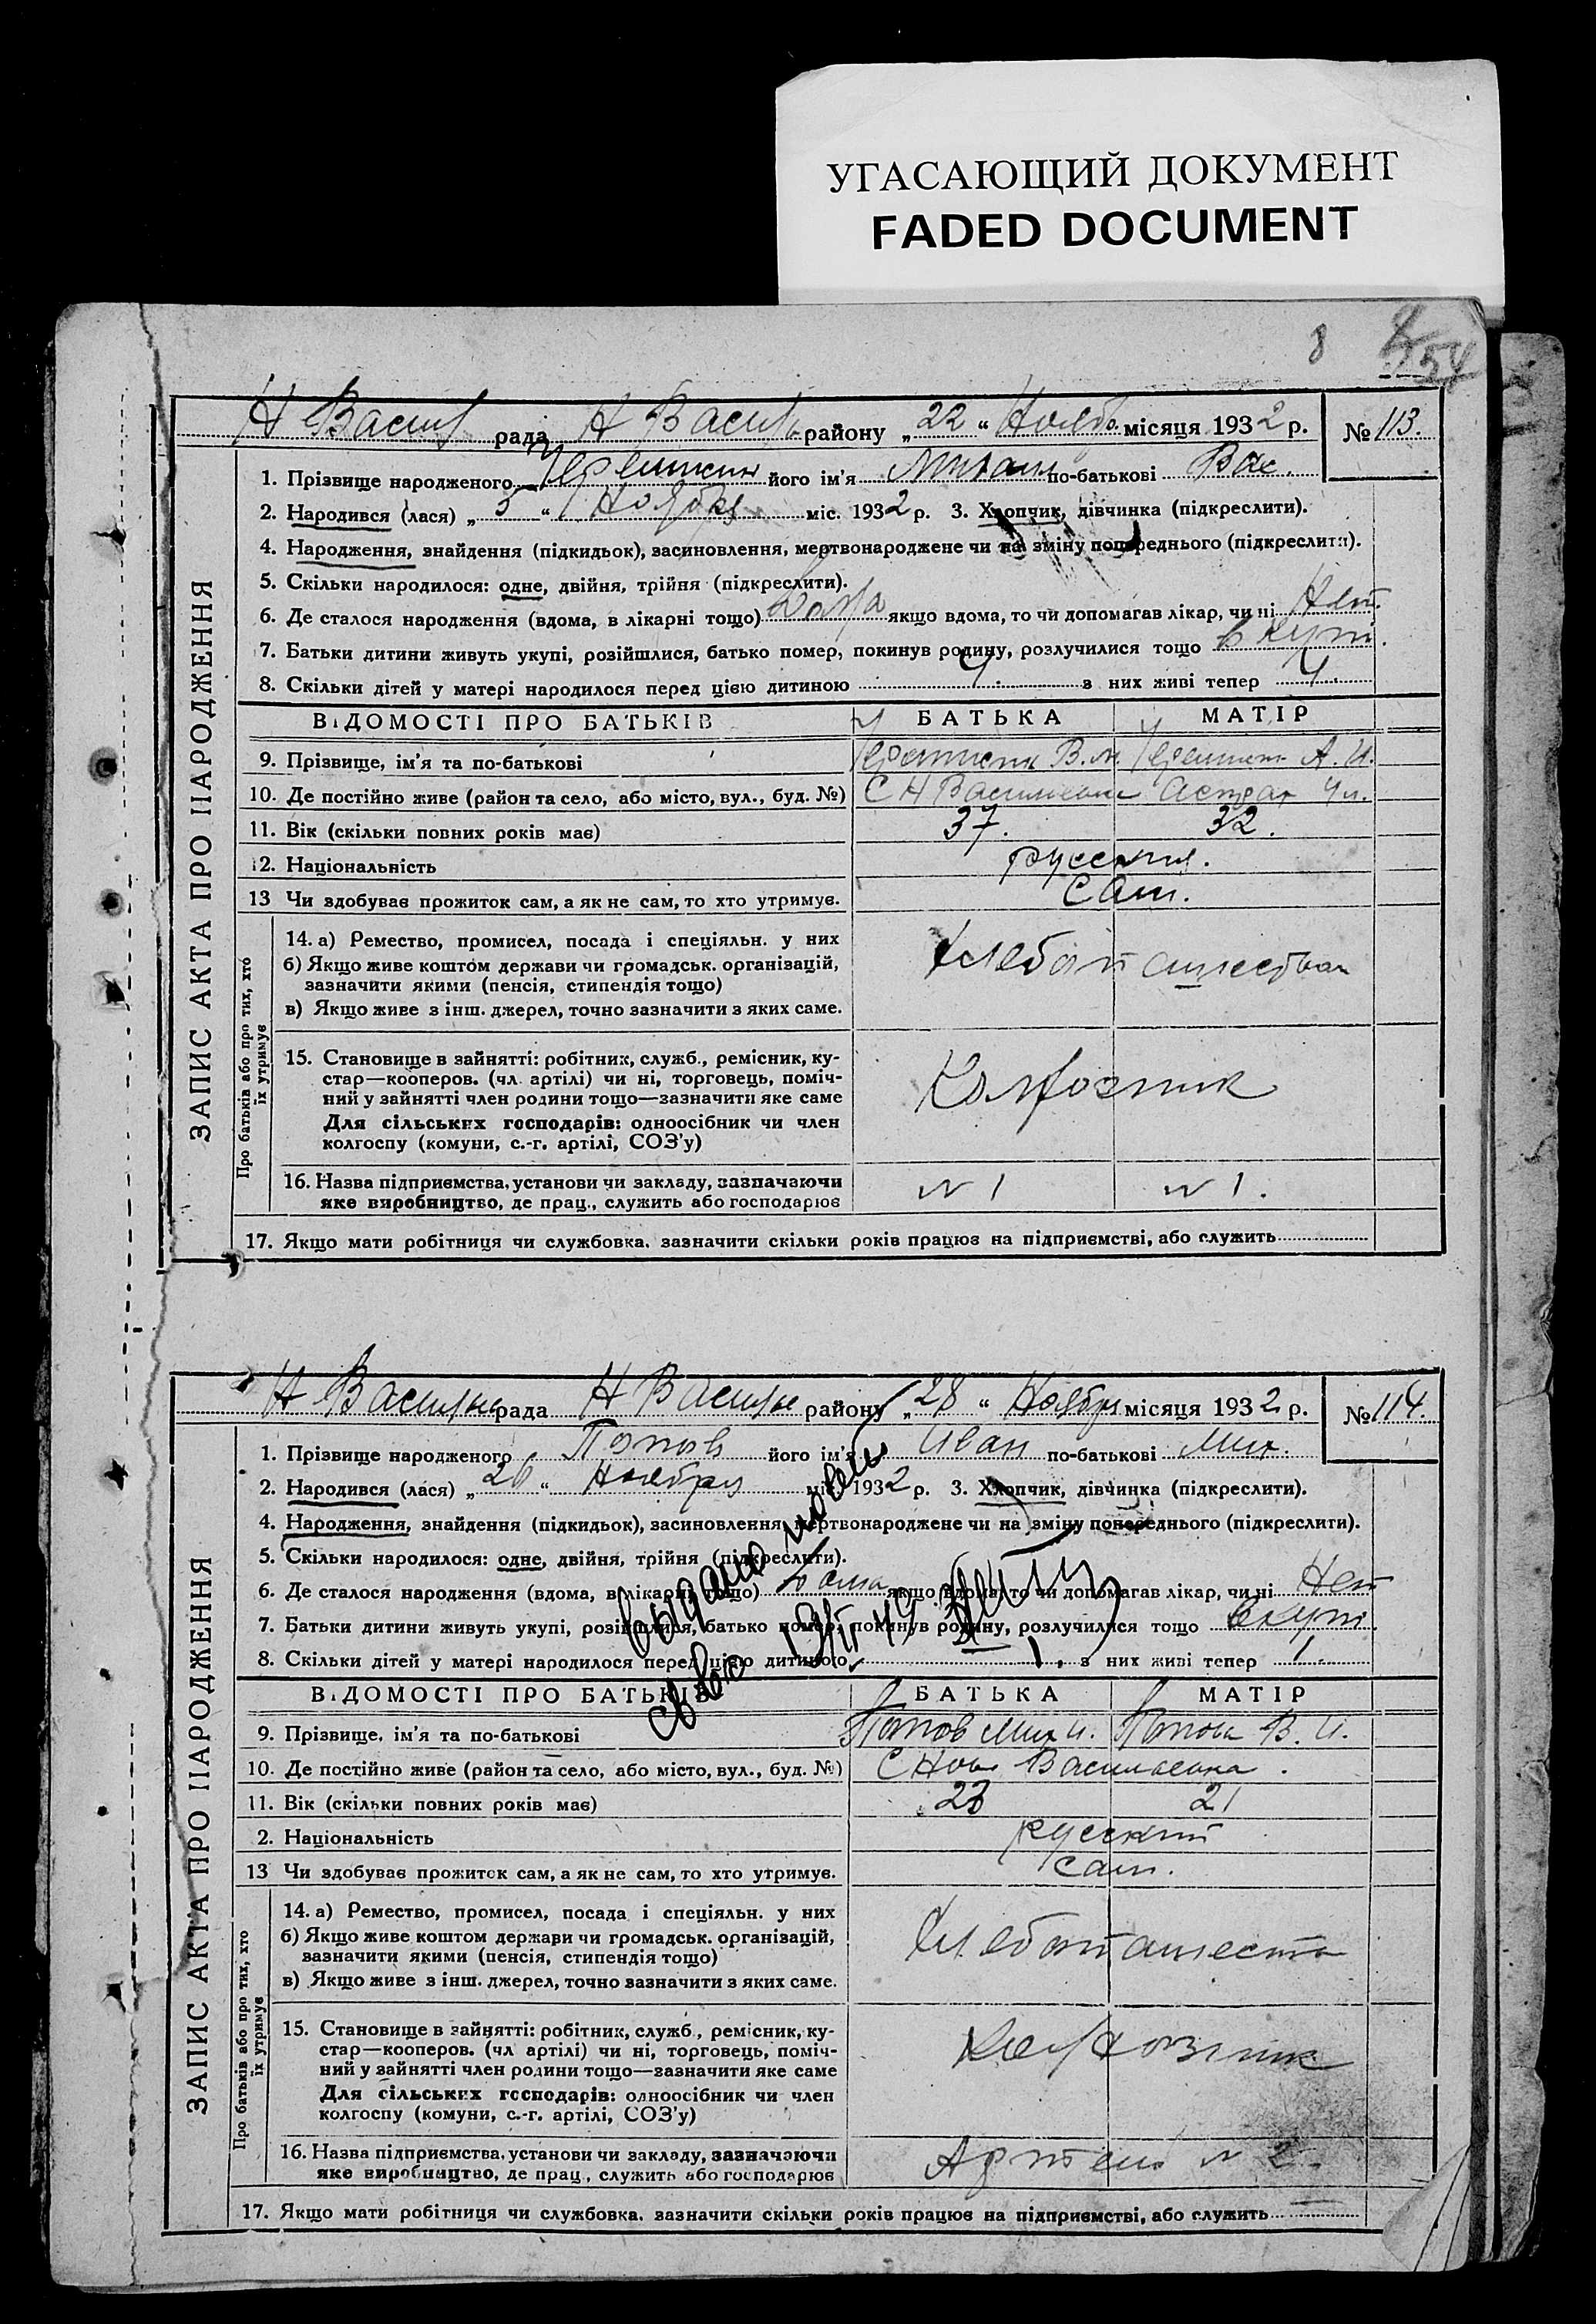 УГАСАЮЩИЙ ДОКУМЕНТ
FADED DOCUMENT
8
254
ЗАПИС АКТА ПРО НАРОДЖЕННЯ
Н Васил рада Н Василь району „22“ Нояб. місяця 1932 р. № 113.
1. Прізвище народженого його ім'я Михаил по-батькові Вас.
2. Народився (лася) „5“ Ноября міс. 1932 р. 3. Хлопчик, дівчинка (підкреслити).
4. Народження, знайдення (підкидьок), засиновлення, мертвонароджене чи на зміну попереднього (підкреслити).
5. Скільки народилося: одне, двійня, трійня (підкреслити).
6. Де сталося народження (вдома, в лікарні тощо) Дома якщо вдома, то чи допомагав лікар, чи ні Нет.
7. Батьки дитини живуть укупі, розійшлися, батько помер, покинув родину, розлучилися тощо вкупі.
8. Скільки дітей у матері народилося перед цією дитиною 4. з них живі тепер 4.
ВІДОМОСТІ ПРО БАТЬКІВ БАТЬКА МАТІР
9. Прізвище, ім'я та по-батькові В. М. А. И.
10. Де постійно живе (район та село, або місто, вул., буд. №) С Н Васильевка
11. Вік (скільки повних років має) 37. 32.
12. Національність русский.
13 Чи здобував прожиток сам, а як не сам, то хто утримує. Сам.
Про батьків або про тих, хто їх утримує
14. а) Ремество, промисел, посада і спеціяльн. у них
б) Якщо живе коштом держави чи громадськ. організацій,
зазначити якими (пенсія, стипендія тощо)
в) Якщо живе з інш. джерел, точно зазначити з яких саме.
15. Становище в зайнятті: робітник, служб., ремісник, ку-
стар—кооперов. (чл. артілі) чи ні, торговець, поміч-
ний у зайнятті член родини тощо—зазначити яке саме
Для сільських господарів: одноосібник чи член
колгоспу (комуни, с.-г. артілі, СОЗ'у)
Колхозник
16. Назва підприємства, установи чи закладу, зазначаючи
яке виробництво, де прац., служить або господарює
N 1 N 1.
17. Якщо мати робітниця чи службовка, зазначити скільки років працює на підприємстві, або служить
ЗАПИС АКТА ПРО НАРОДЖЕННЯ
Н Василье рада Н Василье району „28“ Ноября місяця 1932 р. № 114.
1. Прізвище народженого Попов його ім'я Иван по-батькові Мих.
2. Народився (лася) „26“ Ноября міс. 1932 р. 3. Хлопчик, дівчинка (підкреслити).
4. Народження, знайдення (підкидьок), засиновлення, мертвонароджене чи на зміну попереднього (підкреслити).
5. Скільки народилося: одне, двійня, трійня (підкреслити).
6. Де сталося народження (вдома, в лікарні тощо) Дома якщо вдома, то чи допомагав лікар, чи ні Нет
7. Батьки дитини живуть укупі, розійшлися, батько помер, покинув родину, розлучилися тощо вкупі.
8. Скільки дітей у матері народилося перед цією дитиною 1. з них живі тепер 1.
ВІДОМОСТІ ПРО БАТЬКІВ БАТЬКА МАТІР
9. Прізвище, ім'я та по-батькові Попов Мих И. Попова В. И.
10. Де постійно живе (район та село, або місто, вул., буд. №) С Ново Васильевка.
11. Вік (скільки повних років має) 23 21
2. Національність русский
13 Чи здобував прожиток сам, а як не сам, то хто утримує. сам.
Про батьків або про тих, хто їх утримує
14. а) Ремество, промисел, посада і спеціяльн. у них
б) Якщо живе коштом держави чи громадськ. організацій,
зазначити якими (пенсія, стипендія тощо)
в) Якщо живе з інш. джерел, точно зазначити з яких саме.
15. Становище в зайнятті: робітник, служб., ремісник, ку-
стар—кооперов. (чл артілі) чи ні, торговець, поміч-
ний у зайнятті член родини тощо—зазначити яке саме
Для сільських господарів: одноосібник чи член
колгоспу (комуни, с.-г. артілі, СОЗ'у)
Колхозник
16. Назва підприємства, установи чи закладу, зазначаючи
яке виробництво, де прац., служить або господарює
Артель N 2.
17. Якщо мати робітниця чи службовка, зазначити скільки років працює на підприємстві, або служить